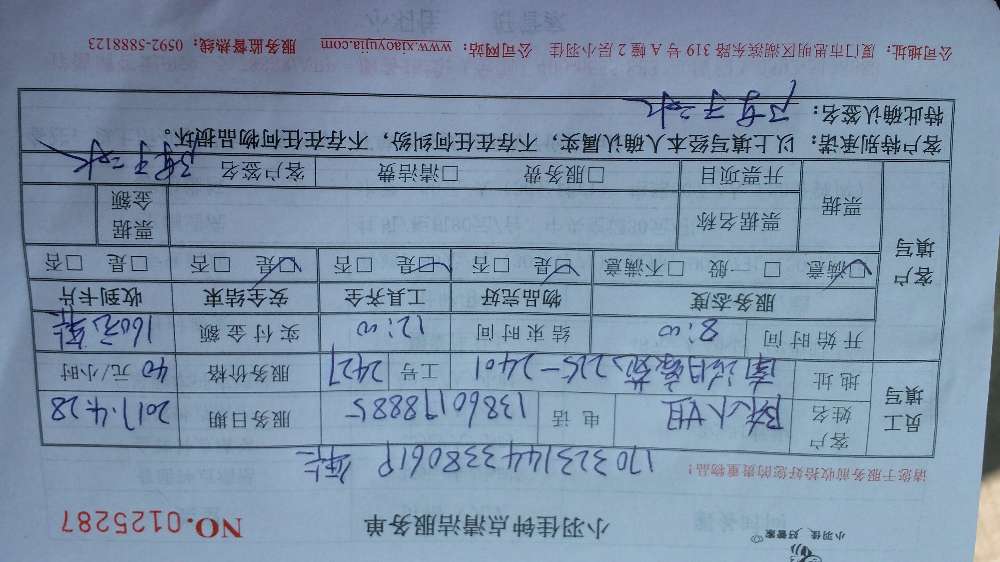 小羽佳 好管家
小羽佳钟点清洁服务单
NO.0125287
请您于服务前收拾好您的贵重物品!
170323144338061P
员工填写
客户姓名 陈小姐 电话 13860178885 服务日期 2017.4.28
地址 215-2401 工号 2427 服务价格 40元/小时
开始时间 8:00 结束时间 12:00 实付金额 160元
客户填写
服务态度 物品完好 工具齐全 安全结束 收到卡片
☑满意 □一般 □不满意 ☑是 □否 ☑是 □否 ☑是 □否 □是 □否
票据 票据名称 票据金额
开票项目 □服务费 □清洁费 客户签名
客户特别承诺:以上填写经本人确认属实,不存在任何纠纷,不存在任何物品损坏。
特此确认签名:
公司地址:厦门市思明区湖滨东路 319 号 A 幢 2 层小羽佳 公司网站:www.xiaoyujia.com 服务监督热线:0592-5888123